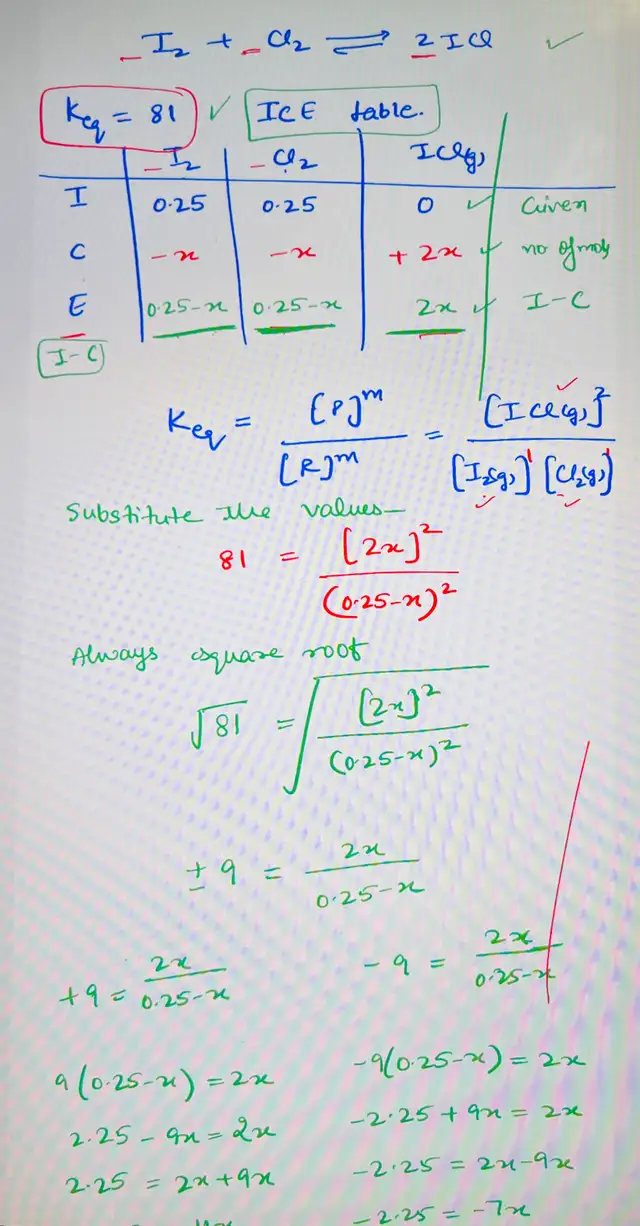 _ I₂ + _ Cl₂ ⇌ 2 ICl ✓
Keq = 81 ✓ ICE table.
_ I₂ _ Cl₂ ICl(g)
I 0.25 0.25 0 ✓ Given
C -x -x + 2x ✓ no of mols
E 0.25-x 0.25-x 2x ✓ I-C
I-C
Keq = [P]^m / [R]^m = [ICl(g)]² / [I₂(g)]¹ [Cl₂(g)]¹
Substitute the values—
81 = [2x]² / (0.25-x)²
Always square root
√81 = √([2x]² / (0.25-x)²)
± 9 = 2x / 0.25-x
+9 = 2x / 0.25-x
9(0.25-x) = 2x
2.25 - 9x = 2x
2.25 = 2x+9x
- 9 = 2x / 0.25-x
-9(0.25-x) = 2x
-2.25 + 9x = 2x
-2.25 = 2x-9x
-2.25 = -7x